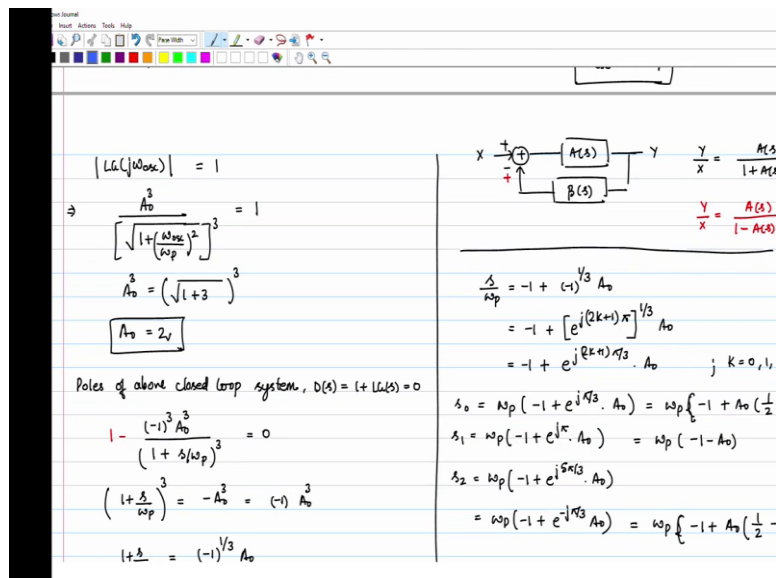 ows Journal
Insert Actions Tools Help
Page Width
|LG(jωosc)| = 1
⇒ A₀³ / [√(1+(ωosc/ωp)²)]³ = 1
A₀³ = (√(1+3))³
A₀ = 2
Poles of above closed loop system, D(s) = 1 + LG(s) = 0
1 - (-1)³ A₀³ / (1 + s/ωp)³ = 0
(1 + s/ωp)³ = -A₀³ = (-1) A₀³
1 + s = (-1)^(1/3) A₀
X + + A(s) Y
- +
β(s)
Y/X = A(s / 1 + A(s
Y/X = A(s) / 1 - A(s)
s/ωp = -1 + (-1)^(1/3) A₀
= -1 + [e^(j(2k+1)π)]^(1/3) A₀
= -1 + e^(j(2k+1)π/3) . A₀ ; k = 0, 1,
s₀ = ωp(-1 + e^(jπ/3) . A₀) = ωp{-1 + A₀(1/2
s₁ = ωp(-1 + e^(jπ) . A₀) = ωp(-1 - A₀)
s₂ = ωp(-1 + e^(j5π/3) . A₀)
= ωp(-1 + e^(-jπ/3) A₀) = ωp{-1 + A₀(1/2 -